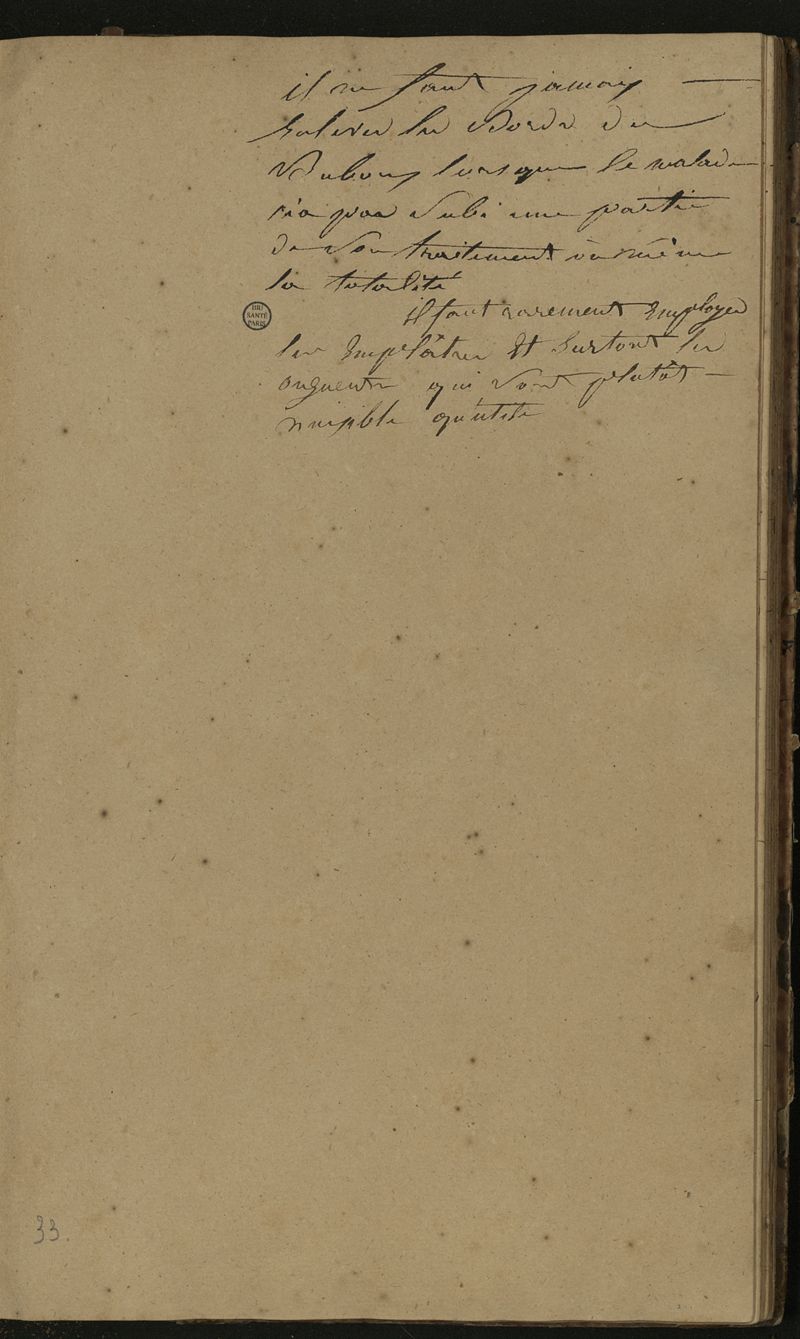 il ne faut jamais
enlever les Bords du
Bubons lorsque le malade
n'a pas Subi une partie
de Son traitement où même
la totalité
il faut rarement Employer
les Emplâtres Et Surtout les
onguents qui Sont plutôt
nuisible qu'utile
BIU
SANTÉ
PARIS
33.